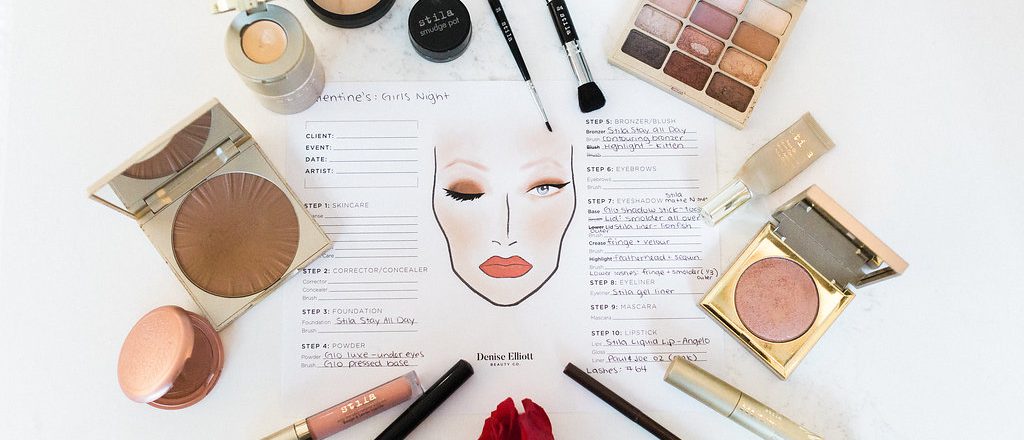 stila
smudge pot
stila
stila
lentine's: Girls Night
CLIENT:
EVENT:
DATE:
ARTIST:
STEP 1: SKINCARE
Care
STEP 2: CORRECTOR/CONCEALER
Corrector
Concealer
Brush
STEP 3: FOUNDATION
Foundation Stila Stay All Day
Brush
STEP 4: POWDER
Powder Glo luxe - under eyes
Brush Glo pressed base
Denise Elliott
BEAUTY CO.
STEP 5: BRONZER/BLUSH
Bronzer Stila Stay all Day
Brush contouring bronzer
Blush Highlight - Kitten
Brush
STEP 6: EYEBROWS
Eyebrows
Brush
STEP 7: EYESHADOW Stila
Base Glo Shadow stick -
Lid: smolder all over
Lower Lid Stila liner - lionfish
Outer
Crease fringe + velour
Brush
Highlight featherhead + sequin
Brush
Lower lashes: fringe + smolder (1/3)
outer
STEP 8: EYELINER
Eyeliner Stila gel liner
STEP 9: MASCARA
Mascara
STEP 10: LIPSTICK
Lips Stila Liquid Lip - Angelo
Gloss
Liner Paul & Joe 02 (pink)
Lashes: #64
stila